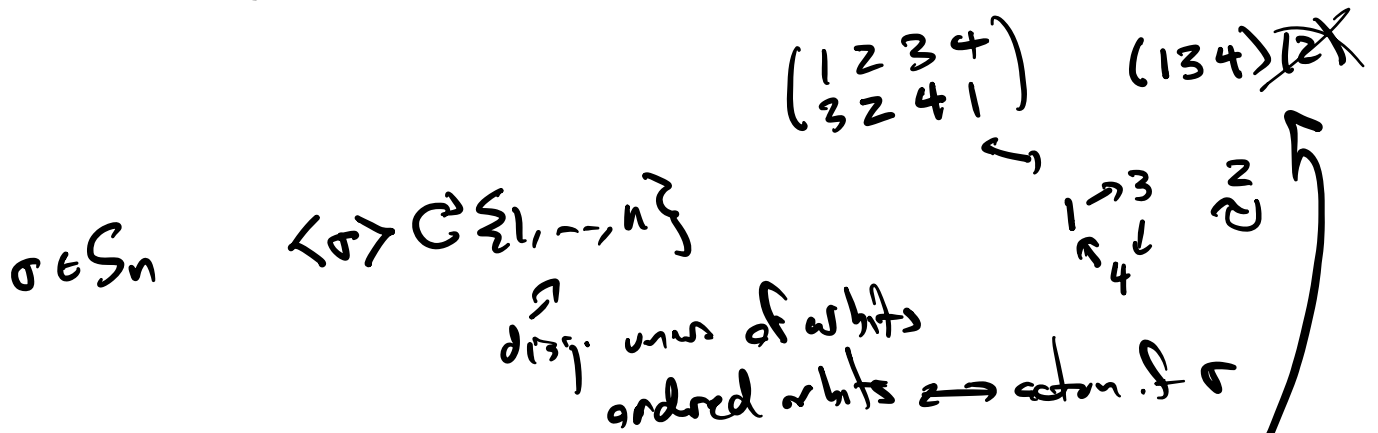 (1 2 3 4
3 2 4 1) (134)(2)
1 → 3
4
2
σ ∈ Sₙ <σ> ⟳ {1, ..., n}
disj. unions of orbits
ordered orbits ⟷ action of σ